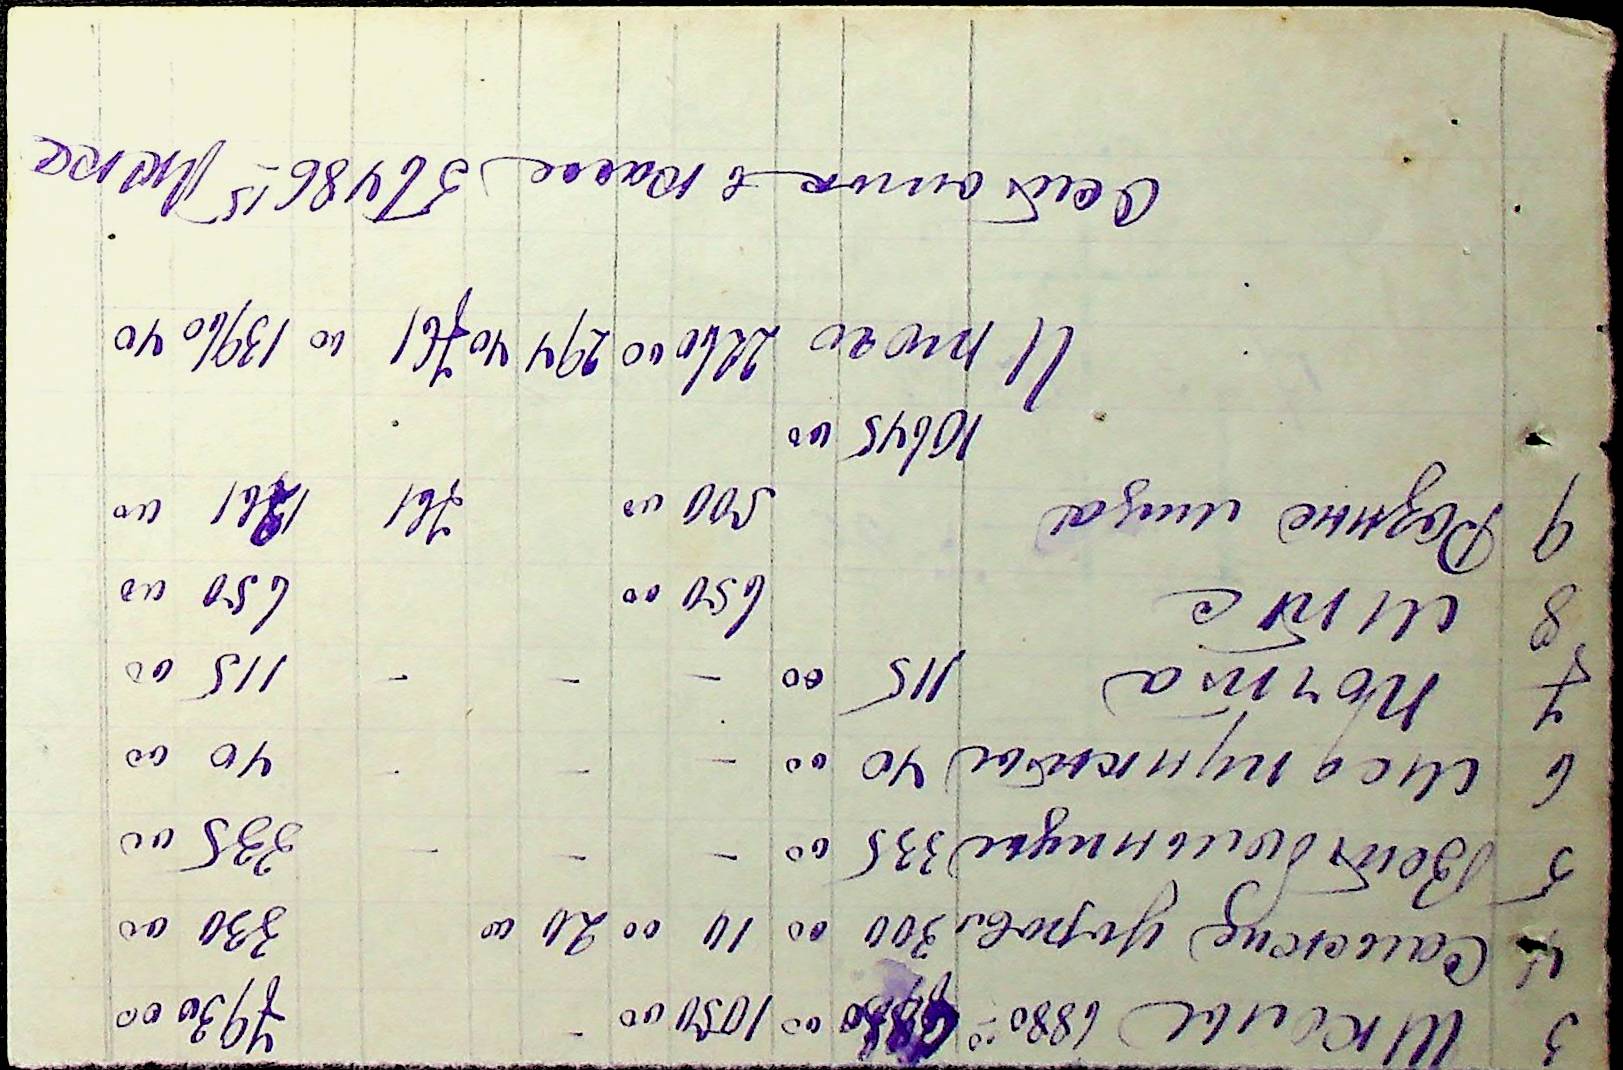 3 Школы 6880-00 6880 00 1050 00 - 7930 00
4 Сельские управ. 300 00 10 00 20 00 330 00
5 Ветбольницы 335 00 - - - 335 00
6 40 00 - - - 40 00
7 Почта 115 00 - - - 115 00
8 МТС 650 00 650 00
9 Разные лица 500 00 761 1261 00
10645 00
Итого 2260 00 294 40 761 00 13960 40
Остаток в кассе 56486-15